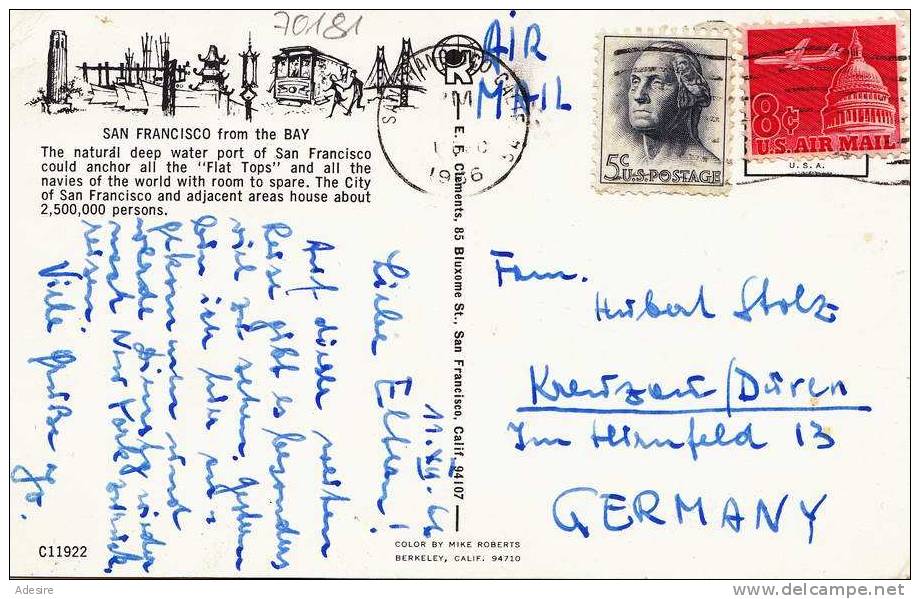 70181
AIR
MAIL
SAN FRANCISCO CALIF
PM
1966
5¢
U.S. POSTAGE
8¢
U.S. AIR MAIL
U.S.A.
SAN FRANCISCO from the BAY
The natural deep water port of San Francisco
could anchor all the "Flat Tops" and all the
navies of the world with room to spare. The City
of San Francisco and adjacent areas house about
2,500,000 persons.
11.XII.66
Liebe Eltern!
Auf dieser weiten
Reise gibt es besonders
viel zu sehen. Gestern
bin ich hier an-
gekommen und
werde Dienstag wieder
nach New York zurück
reisen.
Viele Grüße Jo.
E. F. Clements, 85 Bluxome St., San Francisco, Calif. 94107
Fam.
Hubert Stolz
Kreuzau/Düren
Im Hirnfeld 13
GERMANY
C11922
COLOR BY MIKE ROBERTS
BERKELEY, CALIF. 94710
Adesire
www.delcampe.net